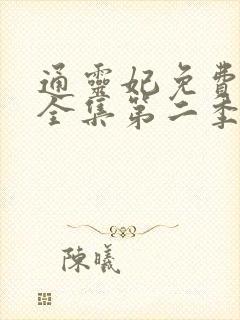 通靈妃免費
全集第二季
陳曦